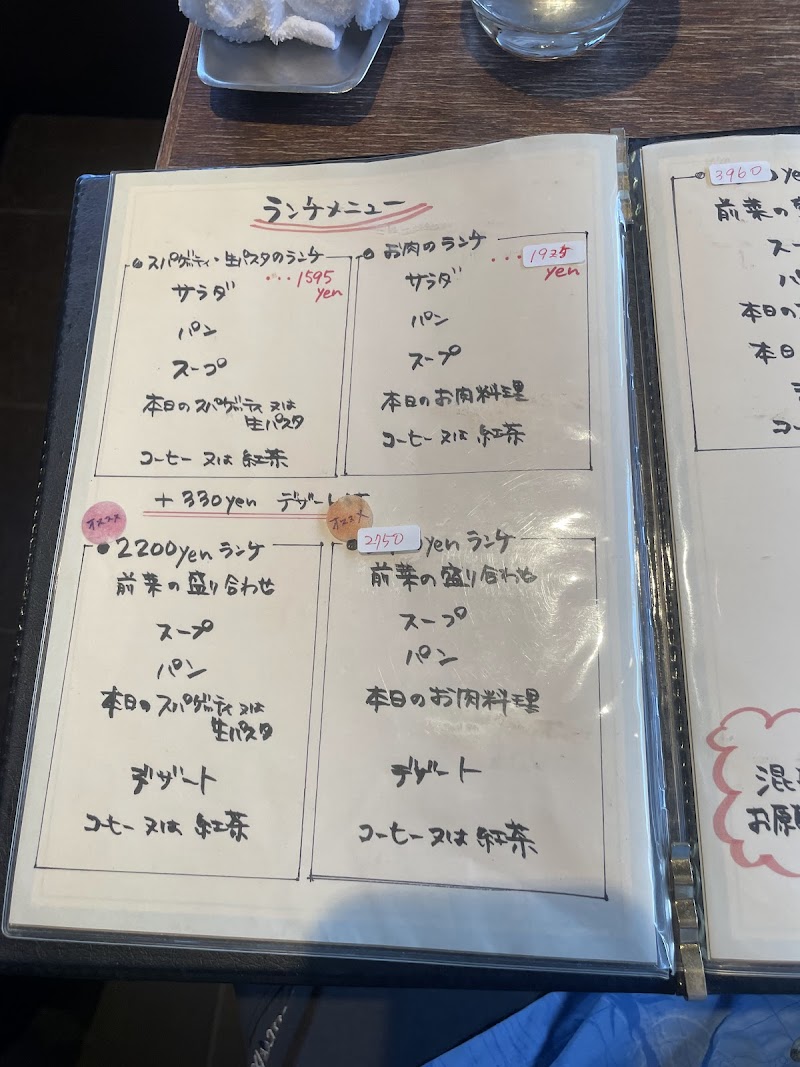 ランチメニュー
スパゲッティ・生パスタのランチ
・・・1595
yen
サラダ
パン
スープ
本日のスパゲッティ又は
生パスタ
コーヒー又は紅茶
お肉のランチ
・・・1925
yen
サラダ
パン
スープ
本日のお肉料理
コーヒー又は紅茶
+330yen デザート
オススメ
2200yenランチ
前菜の盛り合わせ
スープ
パン
本日のスパゲッティ又は
生パスタ
デザート
コーヒー又は紅茶
オススメ
2750yenランチ
前菜の盛り合わせ
スープ
パン
本日のお肉料理
デザート
コーヒー又は紅茶
3960 ye
前菜の
ス
パ
本日の
本日
コ
混
お願